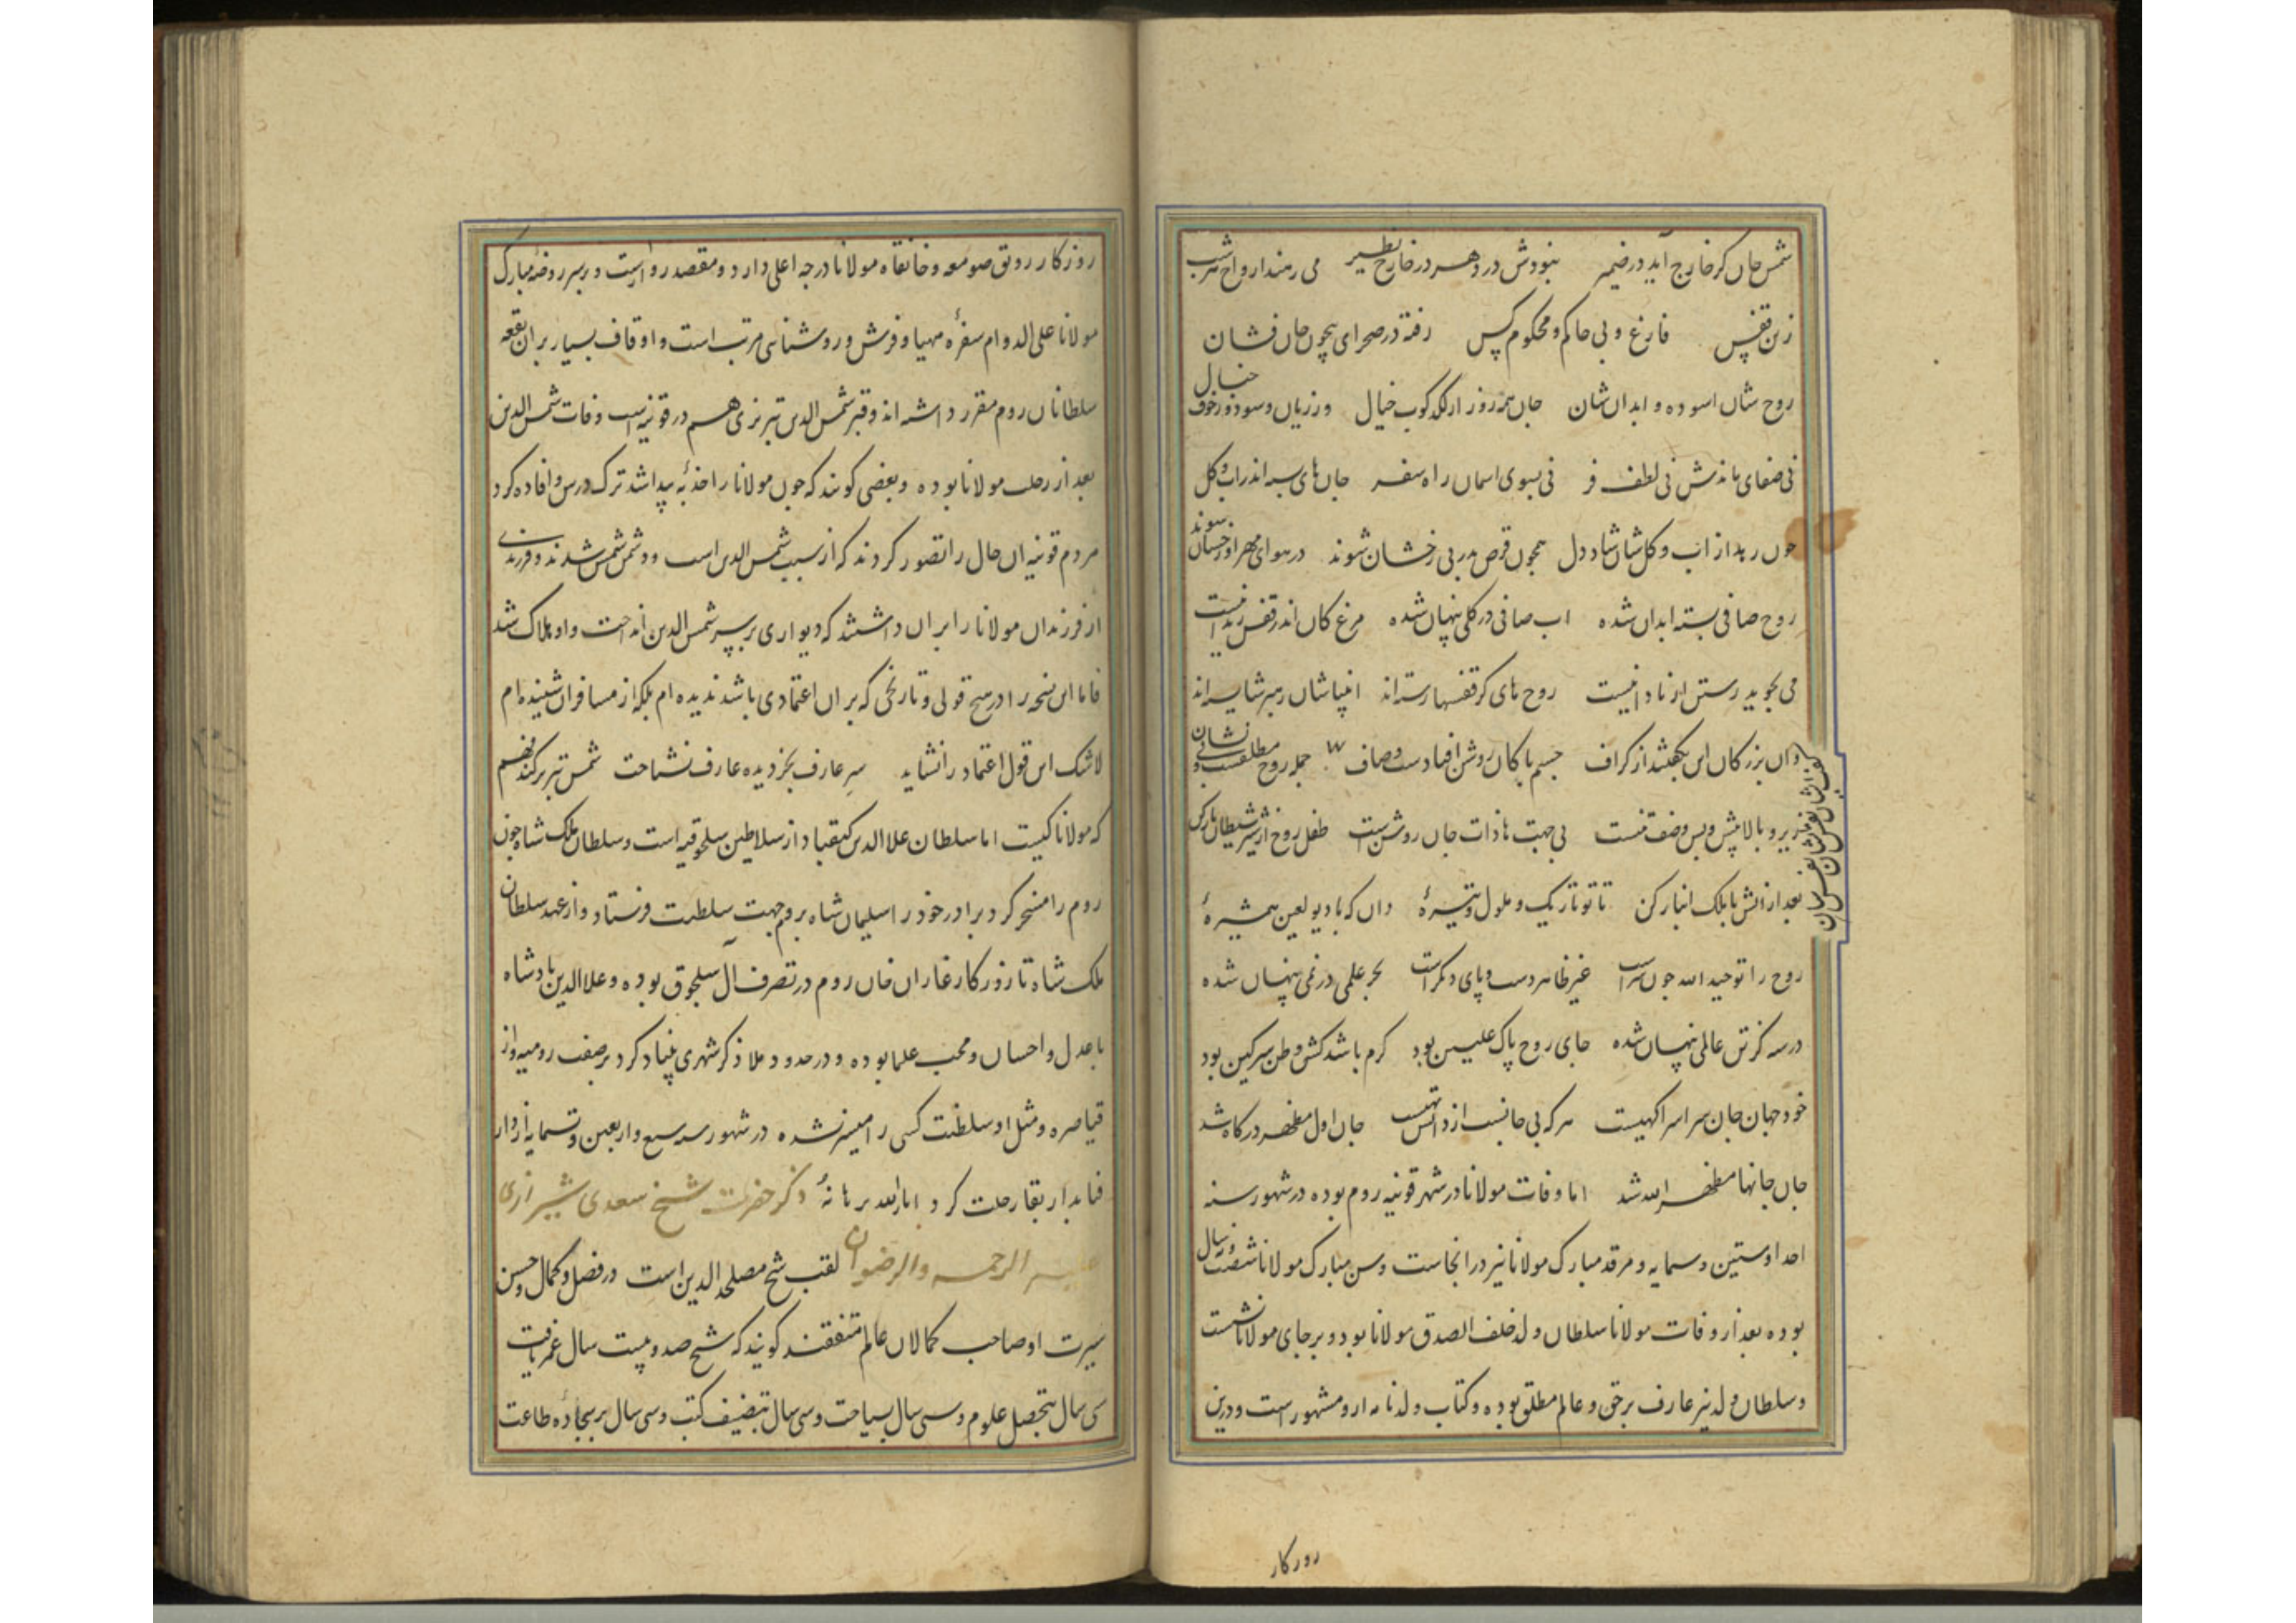 شمس جان کز خارج آید در ضمیر نبودش در دهر در خارج نظیر می رهند ارواح هر شب
زین قفس فارغ و بی حاکم و محکوم کس رفته در صحرای بیچون جان شان
روح شان اسوده و ابدان شان جان همه روز از لکدکوب خیال وز زیان و سود و ز خوف
نی صفای ماندش نی لطف و فر نی بسوی اسمان راه سفر جان های بسته اندر اب و کل
چون رهد از اب و کل شان شاد دل همچون قرص بدر بی نقصان شوند در هوای مهر او رقصان
شوند
روح صافی بسته ابدان شده اب صافی در کلی پنهان شده مرغ کان اندر قفس زندانیست
می نجوید رستن از نادانیست روح های کز قفسها رسته اند انبیا شان رهبر شایسته اند
وان بزرکان این نکفتند از کزاف جسم پاکان روشن افتادست و صاف جمله روح مطلقست و بی
نشان
زیر و بالا پیش و پس وصف تنست بی جهت ها ذات جان روشنست طفل روح از شیر شیطان باز کن
بعد از انش با ملک انباز کن تا تو تاریک و ملول و تیرهٔ دان که با دیو لعین همشیرهٔ
روح را توحید الله خوش سرست غیر ظاهر دست و پای دیکرست بحر علمی در نمی پنهان شده
در سه کز تن عالمی پنهان شده جای روح پاک علیین بود کرم باشد کش وطن سرکین بود
خود جهان جان سراسر اکهیست هر که بی جانست از دانش تهیست جان اول مظهر درکاه شد
جان جانها مظهر الله شد اما وفات مولانا در شهر قونیه روم بوده در شهور سنه
احد و ستین و ستمایه و مرقد مبارک مولانا نیز در انجاست و سن مبارک مولانا شصت و نه سال
بوده بعد از وفات مولانا سلطان ولد خلف الصدق مولانا بود و بر جای مولانا نشست
و سلطان ولد نیز عارف برحق و عالم مطلق بوده و کتاب ولد نامه از و مشهور است و درین
روزکار
روزکار رونق صومعه و خانقاه مولانا درجه اعلی دارد و مقصد زوار است و بر سر روضهٔ مبارک
مولانا علی الدوام سفرهٔ مهیا و فرش و روشنایی مرتب است و اوقاف بسیار بر ان بقعه
سلطانان روم مقرر داشته اند و قبر شمس الدین تبریزی هم در قونیه است وفات شمس الدین
بعد از رحلت مولانا بوده و بعضی کویند که چون مولانا را جذبهٔ پیدا شد ترک درس و افاده کرد
مردم قونیه ان حال را تصور کردند که از سبب شمس الدین است و دشمن شمس شدند و فرزندی
از فرزندان مولانا را بر ان داشتند که دیواری بر سر شمس الدین انداخت و او هلاک شد
فاما این سخن را در هیچ قولی و تاریخی که بر ان اعتمادی باشد ندیده ام بلکه از مسافران شنیده ام
لاشک این قول اعتماد را نشاید سر عارف بجز دیده عارف نشناخت شمس تبریز کند فهم
که مولانا کیست اما سلطان علا الدین کیقباد از سلاطین سلجوقیه است و سلطان ملک شاه چون
روم را مسخر کرد برادر خود را سلیمان شاه بروم جهت سلطنت فرستاد و از عهد سلطان
ملک شاه تا روزکار غازان خان روم در تصرف آل سلجوق بوده و علا الدین پادشاه
با عدل و احسان و محب علما بوده و در حدود ملاذکر شهری بنیاد کرد بر صفت رومیه و از
قیاصره و مثل او سلطنت کسی را میسر نشده در شهور سنه سبع و اربعین و ستمایه از دار
فنا بدار بقا رحلت کرد انار الله برهانهٔ ذکر حضرت شیخ سعدی شیرازی
علیه الرحمه والرضوان لقب شیخ مصلح الدین است در فضل و کمال و حسن
سیرت او صاحب کمالان عالم متفقند کویند که شیخ صد و بیست سال عمر یافت
سی سال بتحصیل علوم و سی سال بسیاحت و سی سال بتصنیف کتب و سی سال بر سجادهٔ طاعت